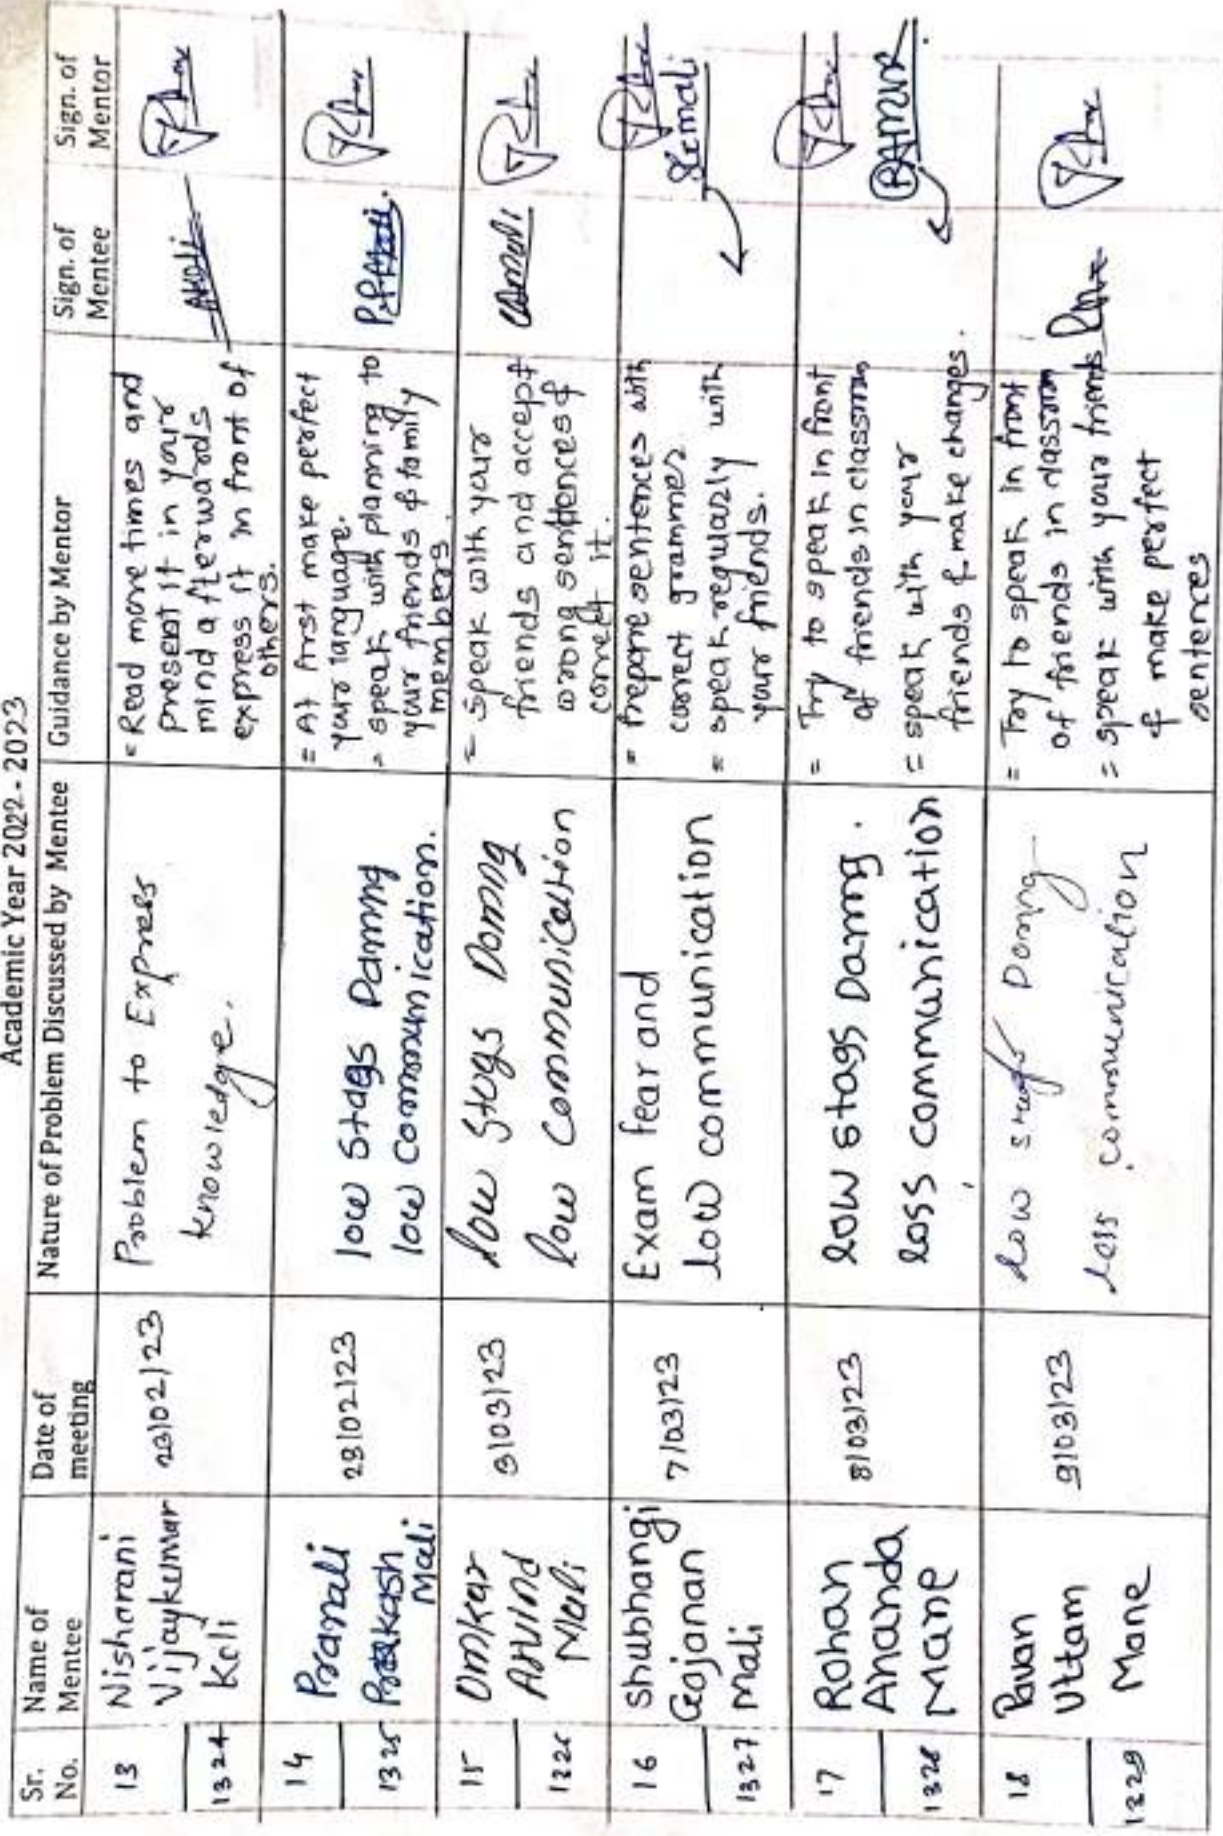 Academic Year 2022-2023
Sr. No. Name of Mentee Date of meeting Nature of Problem Discussed by Mentee Guidance by Mentor Sign. of Mentee Sign. of Mentor
13
1324
Nisharani
Vijaykumar
Koli
23/02/23
Problem to Express
knowledge.
= Read more times and
present it in your
mind afterwards
express it in front of
others.
14
1325
Pranali
Prakash
Mali
28/02/23
low Stags Daring
low communication.
= At first make perfect
your language.
= speak with planning to
your friends & family
members.
P.P.Mali.
15
1326
Omkar
Arvind
Mali
3/03/23
low Stags Daring
low communication
= Speak with your
friends and accept
wrong sentences &
correct it.
OAMali
16
1327
Shubhangi
Gajanan
Mali
7/03/23
Exam fear and
low communication
= Prepare sentences with
correct grammer
= speak regularly with
your friends.
17
1328
Rohan
Ananda
Mane
8/03/23
low stags Daring.
loss communication
= Try to speak in front
of friends in classroom
= speak with your
friends & make changes.
18
1329
Pavan
Uttam
Mane
9/03/23
low Daring
less communication
= Try to speak in front
of friends in classroom
= speak with your friends
& make perfect
sentences